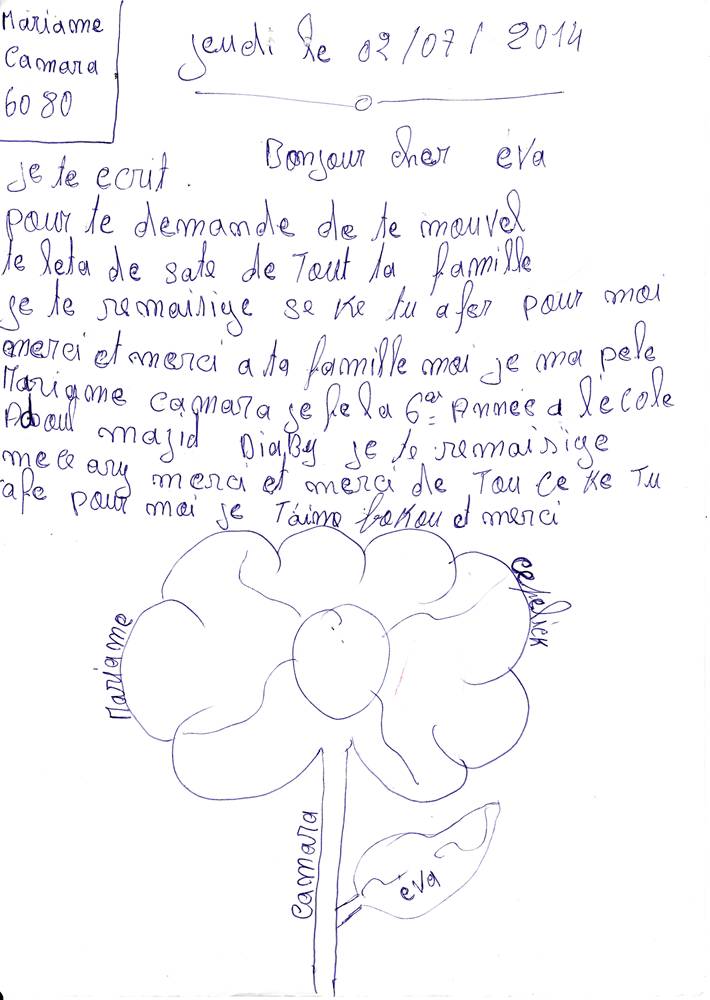 Mariame
Camara
6080
jeudi le 02/07/2014
Bonjour cher éva
je te ecrit.
pour te demande de te nouvel
te leta de sate de Tout ta famille
je te remaisige se ke tu a fer pour moi
merci et merci a ta famille moi je ma pele
Mariame camara je fe la 6er Année a l'école
Abdoul majid DiaBy je te remaisige
merci et merci de Tou ce ke Tu
afe pour moi je T'aime bokou et merci
Mariame
camara
éva